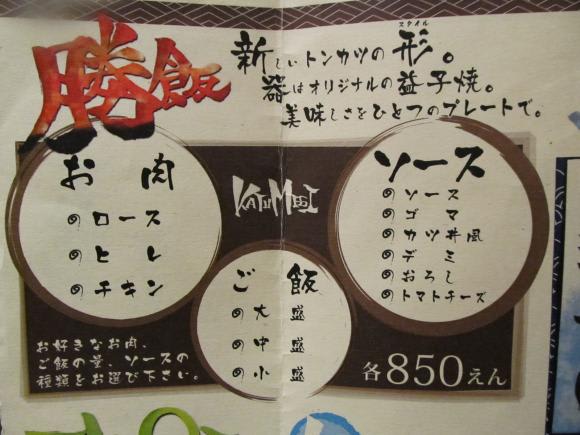 勝飯
新しいトンカツの形。
スタイル
器はオリジナルの益子焼。
美味しさをひとつのプレートで。
お肉
のロース
のヒレ
のチキン
KATUMESI
ソース
のソース
のゴマ
のカツ丼風
のデミ
のおろし
のトマトチーズ
ご飯
の大盛
の中盛
の小盛
お好きなお肉、
ご飯の量、ソースの
種類をお選び下さい。
各850えん